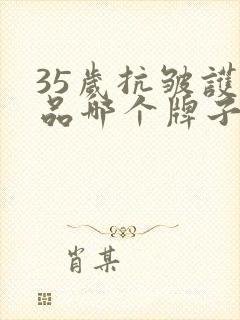 35歲抗皱護
品哪个牌子
肖某